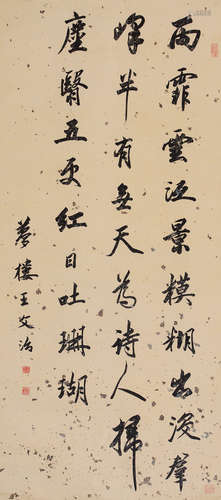 雨霏雲泛景糢糊出沒羣
峰半有無天為詩人掃
塵翳五更紅日吐珊瑚
夢樓王文治